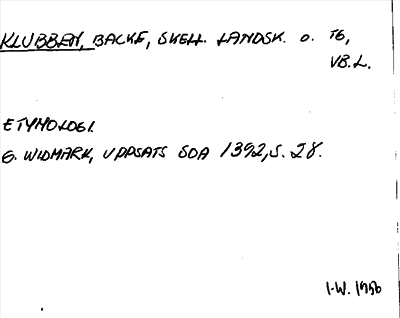 KLUBBEN, BACKE, SKELL. LANDSK. O. TG,
VB.L.
ETYMOLOGI.
G. WIDMARK, UPPSATS SOA 1392, S. 28.
I.W. 1956